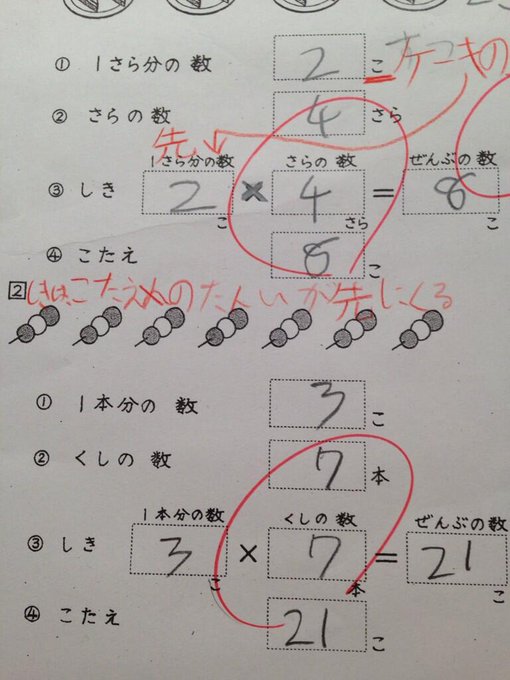 ① 1さら分の 数 2 こ ケーキの
② さらの 数 4 さら
先
1さら分の数 さらの 数 ぜんぶの 数
③ しき 2 × 4 = 8
こ さら こ
④ こたえ 8 こ
2 しきは、こたえのたんいが先にくる
① 1本分の 数 3 こ
② くしの 数 7 本
1本分の数 くしの 数 ぜんぶの数
③ しき 3 × 7 = 21
こ 本 こ
④ こたえ 21 こ